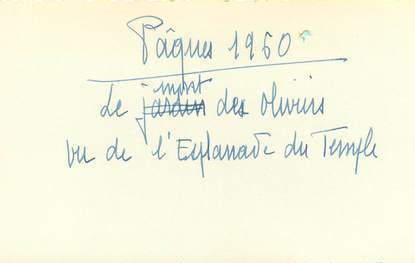 Pâques 1960
Le mont des oliviers
vu de l'Esplanade du Temple